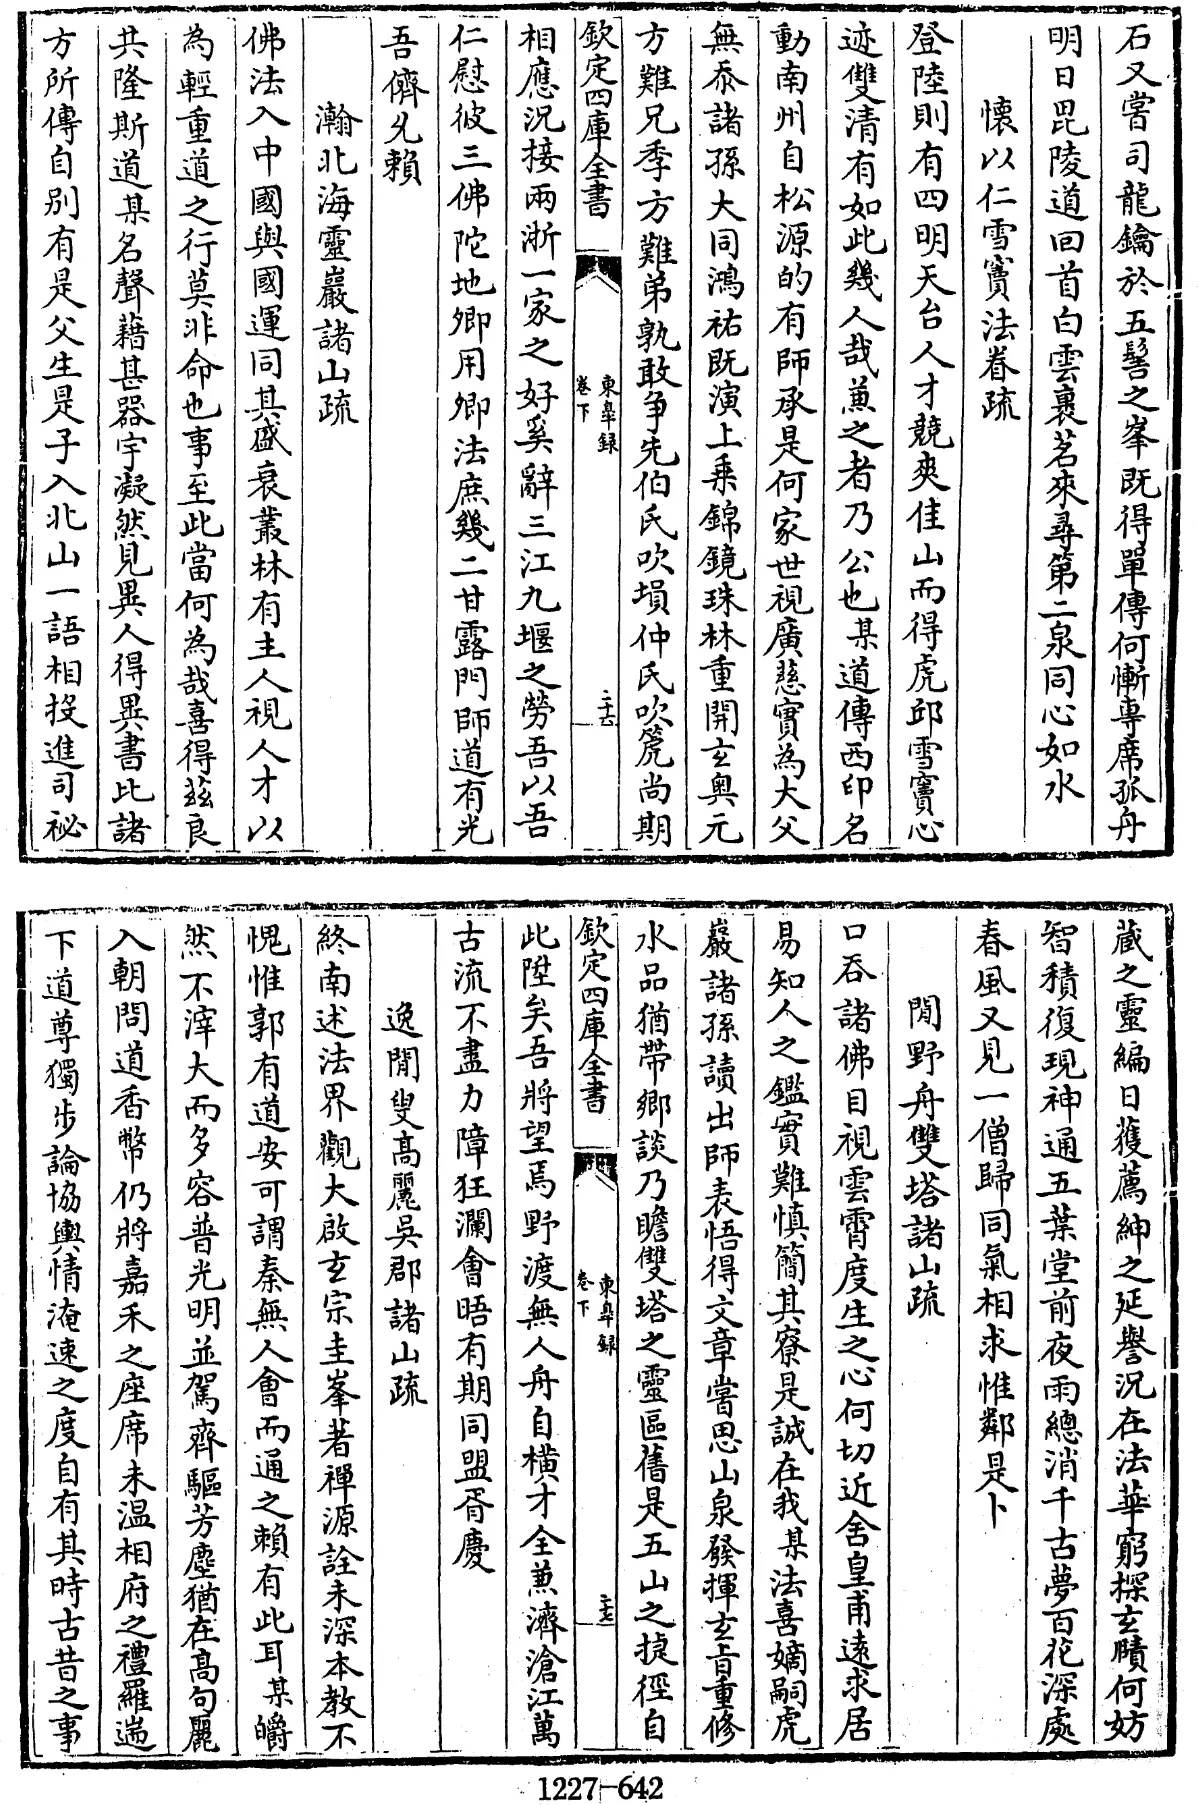 石又嘗司龍鑰於五髻之峯既得單傳何慚專席孤舟
明日毘陵道回首白雲裏茗來尋第二泉同心如水
懷以仁雪竇法眷疏
登陸則有四明天台人才競爽佳山而得虎邱雪竇心
迹雙清有如此幾人哉兼之者乃公也某道傳西印名
動南州自松源的有師承是何家世視廣慈實為大父
無忝諸孫大同鴻祐既演上乗錦鏡珠林重開玄奥元
方難兄季方難弟孰敢争先伯氏吹塤仲氏吹箎尚期
欽定四庫全書
東皐録
卷下
二十六
相應況接兩浙一家之好奚辭三江九堰之勞吾以吾
仁慰彼三佛陀地卿用卿法庶幾二甘露門師道有光
吾儕允賴
瀚北海靈巖諸山疏
佛法入中國與國運同其盛衰叢林有主人視人才以
為輕重道之行莫非命也事至此當何為哉喜得兹良
共隆斯道某名聲藉甚器宇凝然見異人得異書比諸
方所傳自别有是父生是子入北山一語相投進司祕
藏之靈編日獲薦紳之延譽況在法華窮探玄賾何妨
智積復現神通五葉堂前夜雨總消千古夢百花深處
春風又見一僧歸同氣相求惟鄰是卜
閒野舟雙塔諸山疏
口吞諸佛目視雲霄度生之心何切近舍皇甫逺求居
易知人之鑑實難慎簡其寮是誠在我某法喜嫡嗣虎
巖諸孫讀出師表悟得文章嘗思山泉發揮玄旨重修
水品猶帶鄉談乃瞻雙塔之靈區舊是五山之捷徑自
欽定四庫全書
東皐録
卷下
二十七
此陞矣吾將望焉野渡無人舟自横才全兼濟滄江萬
古流不盡力障狂瀾會晤有期同盟胥慶
逸閒叟髙麗吳郡諸山疏
終南述法界觀大啟玄宗圭峯著禪源詮未深本教不
愧惟郭有道安可謂秦無人會而通之賴有此耳某皭
然不滓大而多容普光明並駕齊驅芳塵猶在髙句麗
入朝問道香幣仍將嘉禾之座席未温相府之禮羅遄
下道尊獨步論協輿情淹速之度自有其時古昔之事
1227-642